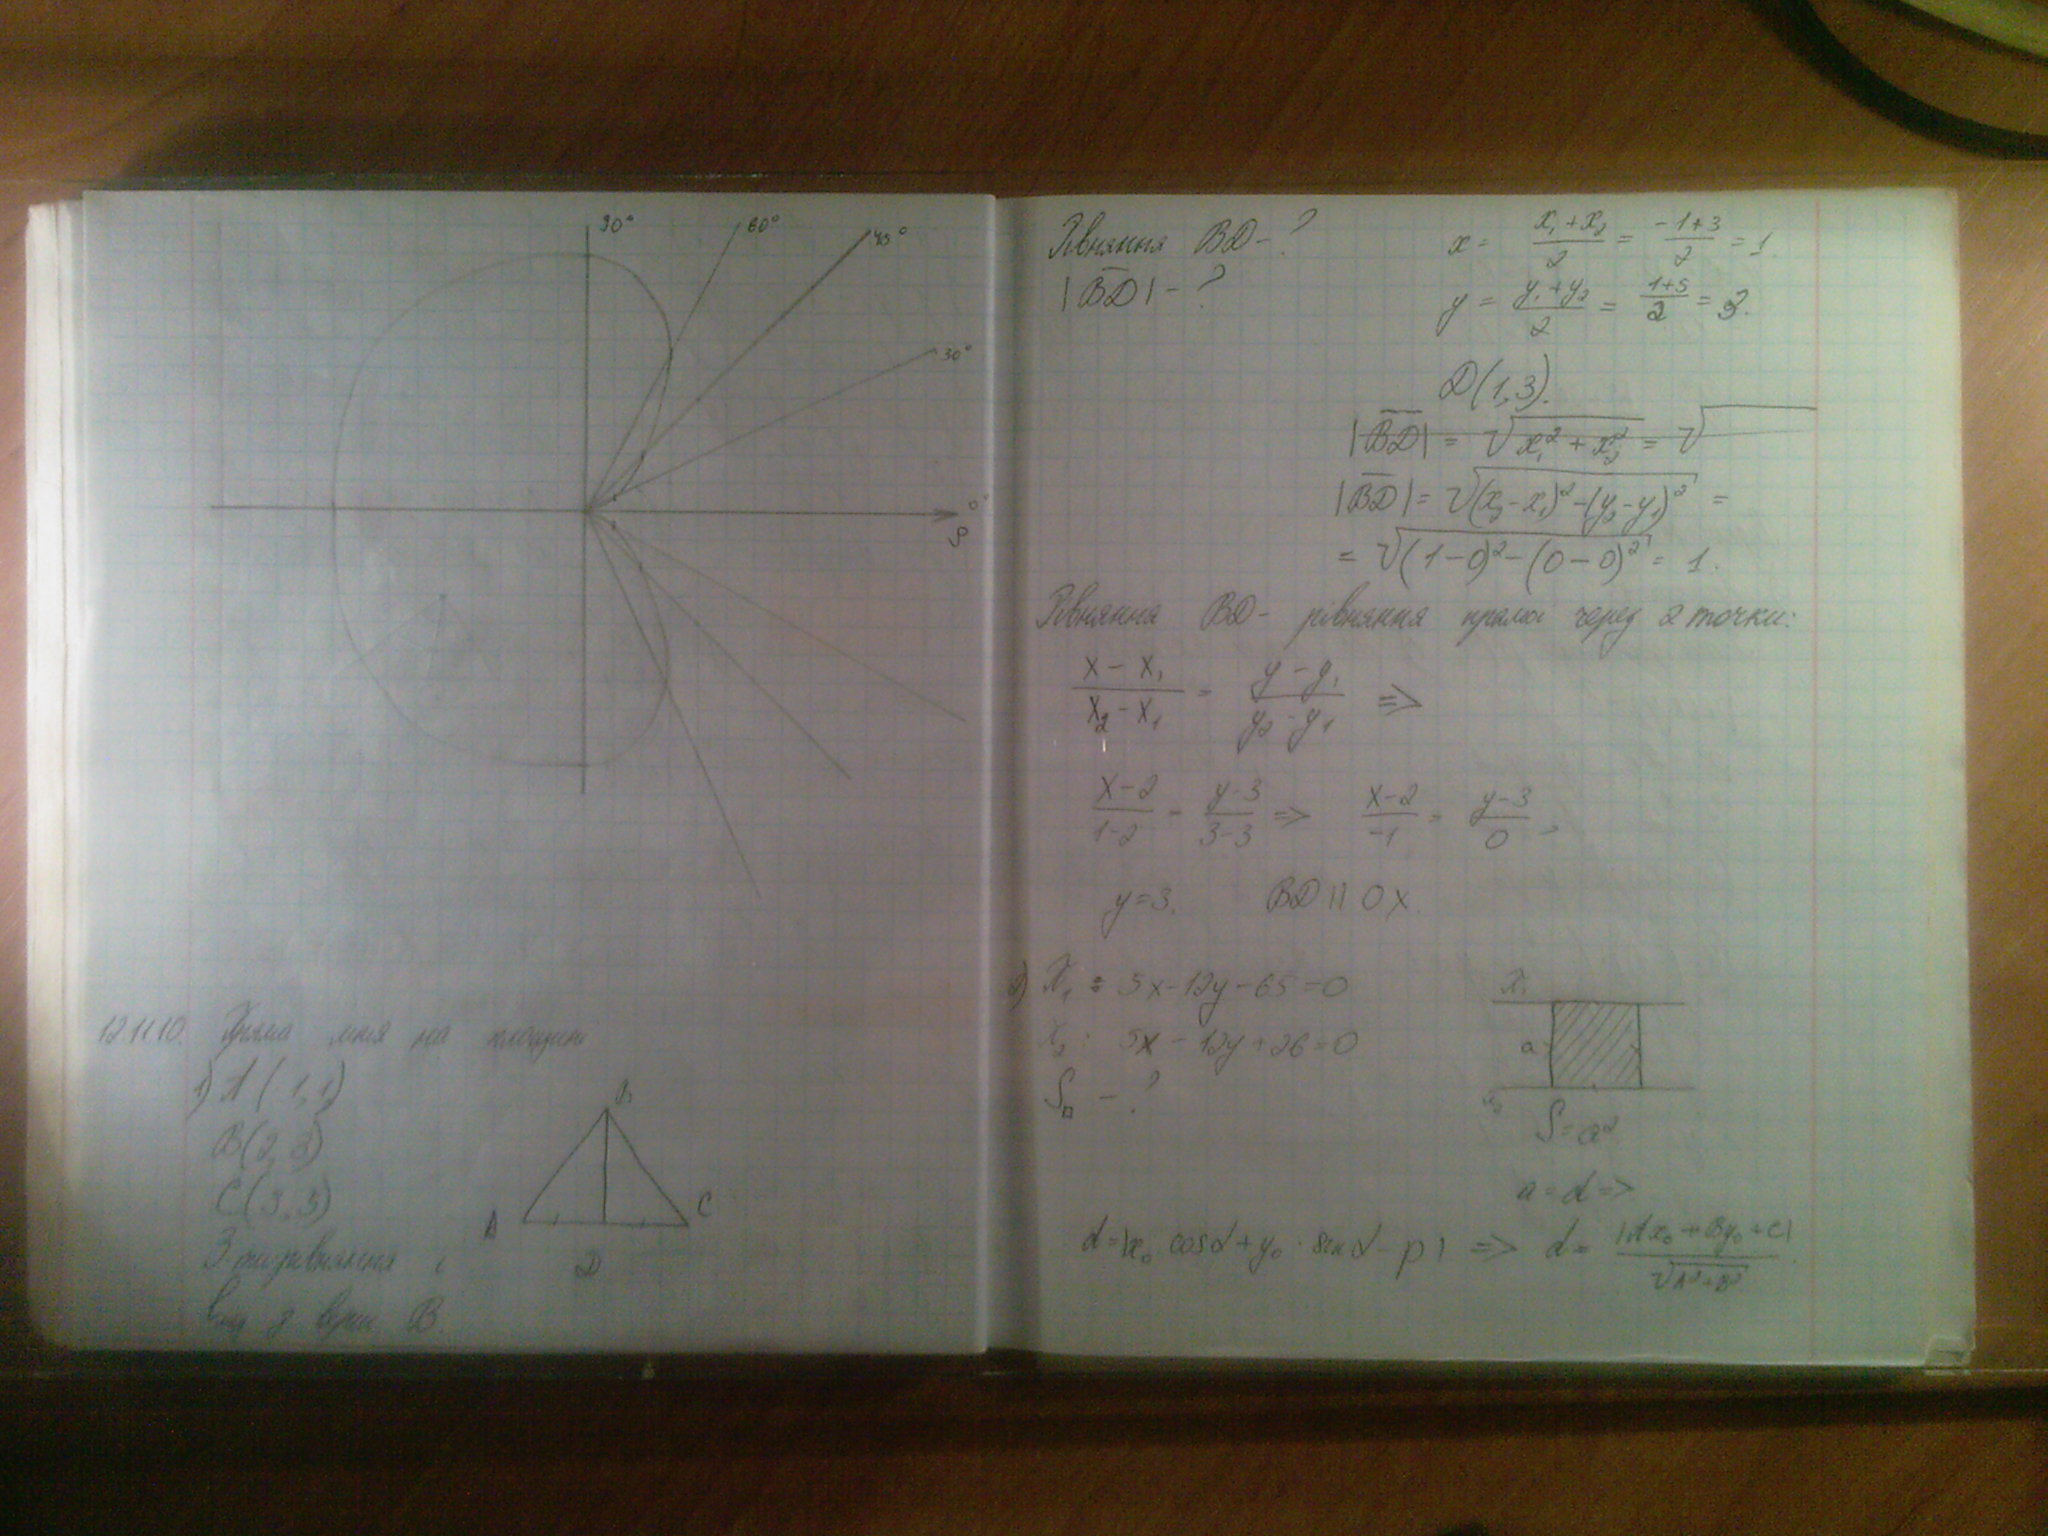 90°
60°
45°
30°
0°
ρ
12.11.10. Пряма лінія на площині
1) A(-1, 1)
B(2, 3)
C(3, 5)
B
A
C
D
B.
Рівняння BD - ?
|BD| - ?
x = (x₁+x₂)/2 = (-1+3)/2 = 1.
y = (y₁+y₂)/2 = (1+5)/2 = 3.
D(1,3).
|BD| = √(x₁² + x₂²) = √
|BD| = √((x₂-x₁)²-(y₂-y₁)²) =
= √((1-0)²-(0-0)²) = 1.
Рівняння BD - рівняння прямої через 2 точки:
(x-x₁)/(x₂-x₁) = (y-y₁)/(y₂-y₁) =>
(x-2)/(1-2) = (y-3)/(3-3) => (x-2)/(-1) = (y-3)/0,
y=3. BD || OX.
2) 5x-12y-65=0
5x-12y+26=0
S□ - ?
a
S=a²
a=d=>
d=|x₀ cosα+y₀·sinα-p| => d= |Ax₀+By₀+C|/√(A²+B²)